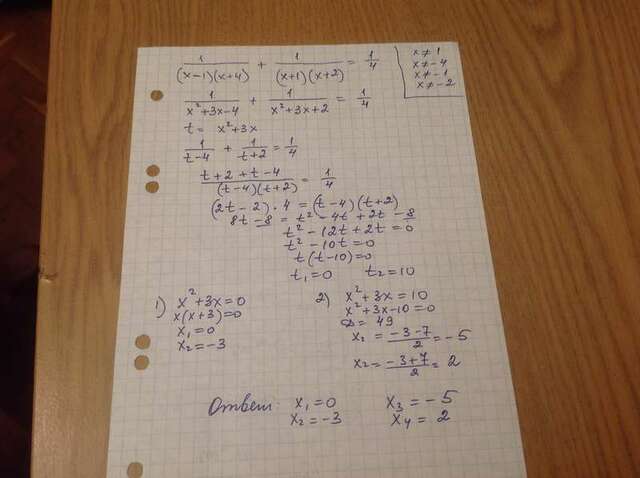 1/((x-1)(x+4)) + 1/((x+1)(x+2)) = 1/4
x ≠ 1
x ≠ -4
x ≠ -1
x ≠ -2
1/(x²+3x-4) + 1/(x²+3x+2) = 1/4
t = x²+3x
1/(t-4) + 1/(t+2) = 1/4
(t+2+t-4)/((t-4)(t+2)) = 1/4
(2t-2)·4 = (t-4)(t+2)
8t-8 = t²-4t+2t-8
t²-12t+2t=0
t²-10t=0
t(t-10)=0
t₁=0 t₂=10
1) x²+3x=0
x(x+3)=0
x₁=0
x₂=-3
2) x²+3x=10
x²+3x-10=0
D= 49
x₂ = (-3-7)/2 = -5
x₂ = (-3+7)/2 = 2
Ответ: x₁=0 x₃=-5
x₂=-3 x₄=2